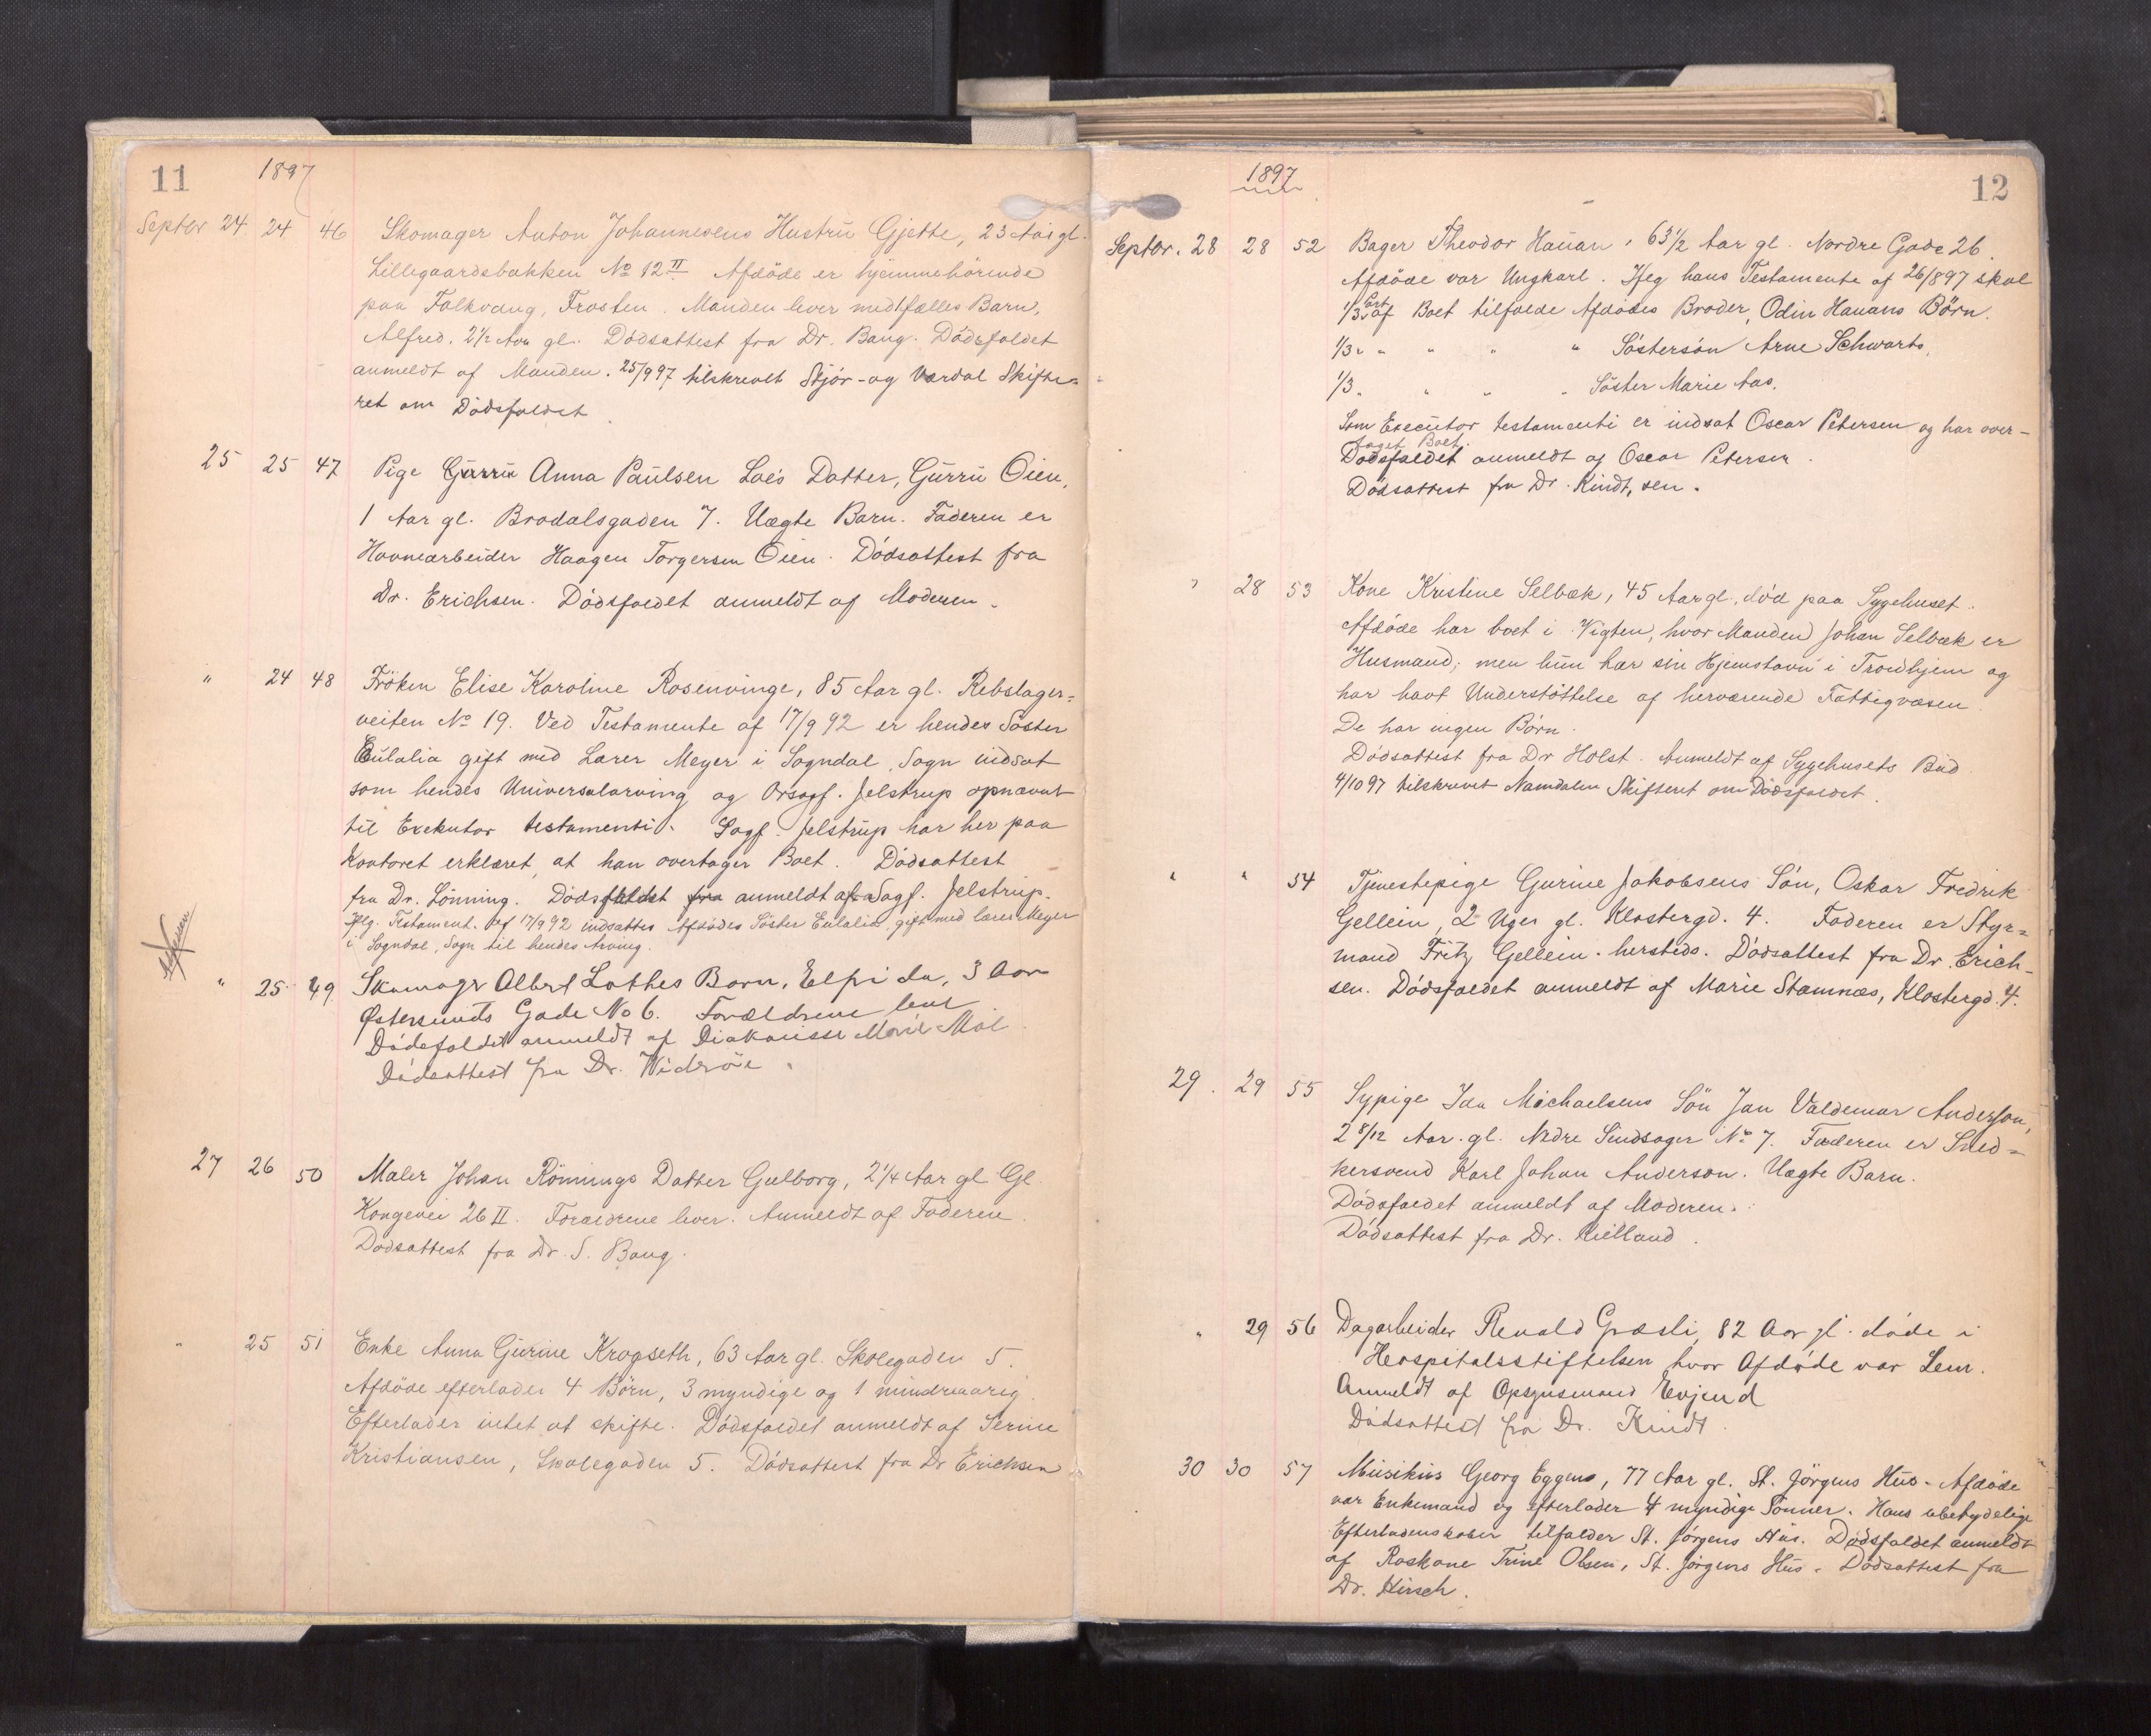 11 1897
Septbr 24. 24 46 Skomager Anton Johannesens Hustru Gjette, 23 Aar gl.
Lillegaardsbakken No 12 II Afdöde er hjemmehörende
paa Falkvang, Frosten. Manden lever med 1 fælles Barn,
Alfred, 2 1/2 Aar gl. Dödsattest fra Dr. Bang. Dödsfaldet
anmeldt af Manden. 25/9 97 tilskrevet Stjör- og Værdal Skifte-
ret om Dödsfaldet.
25 25 47 Pige Gurru Anna Paulsen Loe's Datter, Gurru Öien,
1 Aar gl. Brodalsgaden 7. Uægte Barn. Faderen er
Havnearbeider Haagen Torgersen Öien. Dödsattest fra
Dr. Erichsen. Dödsfaldet anmeldt af Moderen.
" 24 48 Fröken Elise Karoline Rosenvinge, 85 Aar gl. Rebslager=
veiten No 19. Ved Testamente af 17/9 92 er hendes Söster
Eulalia gift med Lærer Meyer i Sogndal, Sogn indsat
som hendes Universalarving og Orsagf. Jelstrup opnævnt
til Executor testamenti. Sagf. Jelstrup har her paa
Kontoret erklæret, at han overtager Boet. Dödsattest
fra Dr. Lönning. Dödsfaldet fra anmeldt af Sagf. Jelstrup.
Iflg. Testament. af 17/9 92 indsattes Afdödes Söster Eulalia, gift med lærer Meyer
i Sogndal, Sogn til hendes Arving.
" 25 49 Skomager Albert Lothes Barn, Elfrida, 3 Aar
Østersunds Gade No 6. Forældrene lever
Dödsfaldet anmeldt af Diakonisse Marie Moe
Dödsattest fra Dr. Widröe.
27 26 50 Maler Johan Rönnings Datter Gulborg, 2 1/4 Aar gl. Gl.
Kongevei 26 II. Forældrene lever. Anmeldt af Faderen.
Dödsattest fra Dr. S. Bang.
" 25 51 Enke Anna Gurine Krogseth, 63 Aar gl. Skolegaden 5.
Afdöde efterlader 4 Börn, 3 myndige og 1 mindreaarig.
Efterlader intet at skifte. Dödsfaldet anmeldt af Serine
Kristiansen, Skolegaden 5. Dödsattest fra Dr Erichsen
1897 12
Septbr. 28 28 52 Bager Theodor Hauan, 63 1/2 Aar gl. Nordre Gade 26.
Afdöde var Ungkarl. Iflg hans Testamente af 26/8 97 skal
1/3 Part af Boet tilfalde Afdödes Broder, Odin Hauans Börn.
1/3 " " " " Söstersön Arne Schwartz,
1/3 " " " " Söster Marie Aas.
Som Executor testamenti er indsat Oscar Petersen og har over-
taget Boet.
Dödsfaldet anmeldt af Oscar Petersen.
Dödsattest fra Dr. Kindt, sen.
" 28 53 Kone Kristine Selbæk, 45 Aar gl., död paa Sygehuset.
Afdöde har boet i Vigten, hvor Manden Johan Selbæk er
Husmand; men hun har sin Hjemstavn i Trondhjem og
har havt Understöttelse af herværende Fattigvæsen.
De har ingen Börn.
Dödsattest fra Dr Holst. Anmeldt af Sygehusets Bud
4/10 97 tilskrevet Namdalen Skifteret om Dödsfaldet.
" " 54 Tjenestepige Gurine Jakobsens Sön, Oskar Fredrik
Gellein, 2 Uger gl. Klostergd. 4. Faderen er Styr=
mand Fritz Gellein hersteds. Dödsattest fra Dr. Erich-
sen. Dödsfaldet anmeldt af Marie Stamnæs, Klostergd. 4.
29. 29 55 Sypige Ida Michaelsens Sön Jan Valdemar Anderson,
2 8/12 Aar gl. Nedre Sindsager No 7. Faderen er Sned=
kersvend Karl Johan Anderson. Uægte Barn.
Dödsfaldet anmeldt af Moderen.
Dödsattest fra Dr. Kielland.
" 29 56 Dagarbeider Renald Græsli, 82 Aar gl. döde i
Hospitalsstiftelsen hvor Afdöde var Lem.
Anmeldt af Opsynsmand Evjend
Dödsattest fra Dr. Kindt.
30 30 57 Musikus Georg Eggens, 77 Aar gl. St. Jörgens Hus. Afdöde
var Enkemand og efterlader 4 myndige Sönner. Hans ubetydelige
Efterladenskaber tilfalder St. Jörgens Hus. Dödsfaldet anmeldt
af Raskone Trine Olsen, St. Jörgens Hus. Dödsattest fra
Dr. Hirsch.